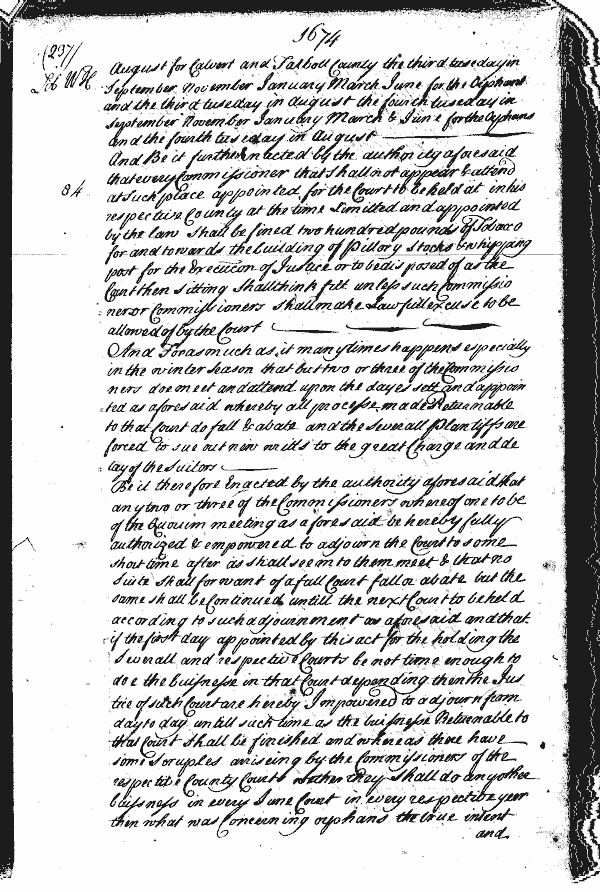 1674
(237)
Lib WH
August for Calvert and Talbott County the third tuseday in
September November January March June for the Orphans
and the third tuseday in August the fourth tuseday in
September November January March & June for the Orphans
and the fourth tuseday in August
And Be it further Enacted by the authority aforesaid
that every Commissioner that shall not appear & attend
84
at Such place appointed for the Court to be held at in his
respective County at the time Limitted and appointed
by the law shall be fined two hundred pounds of Tobaco
for and towards the building of Pillory Stocks & whipping
post for the Execution of Justice or to be disposed of as the
Court then sitting shall think fitt unless such Commissio
ner or Commissioners shall make Lawfull excuse to be
allowed of by the Court
And Forasmuch as it many times happens especially
in the winter season that but two or three of the Commissio
ners doe meet and attend upon the dayes sett and appoin
ted as aforesaid whereby all processe made Returnable
to that Court do fall & abate and the severall Plantiffs are
forced to sue out new writts to the great Charge and de
lay of the Suitors
Be it therefore Enacted by the authority aforesaid that
any two or three of the Commissioners whereof one to be
of the Quoium meeting as aforesaid be hereby fully
authorized & empowered to adjourn the Court to some
short time after as shall seem to them meet & that no
Suite shall for want of a full Court fall or abate but the
same shall be Continued untill the next Court to be held
according to such adjournment as aforesaid and that
if the first day appointed by this act for the holding the
severall and respective Courts be not time enough to
doe the buisnesse in that Court depending then the Jus
tice of such Court are hereby Impowered to adjourn from
day to day untill such time as the buisnesse Returnable to
that Court shall be finished and whereas there have
some Scruples ariseing by the Commissioners of the
respective County Courts whether they shall do any other
buisness in every June Court in every respective year
then what was Concerning orphans the true intent
and